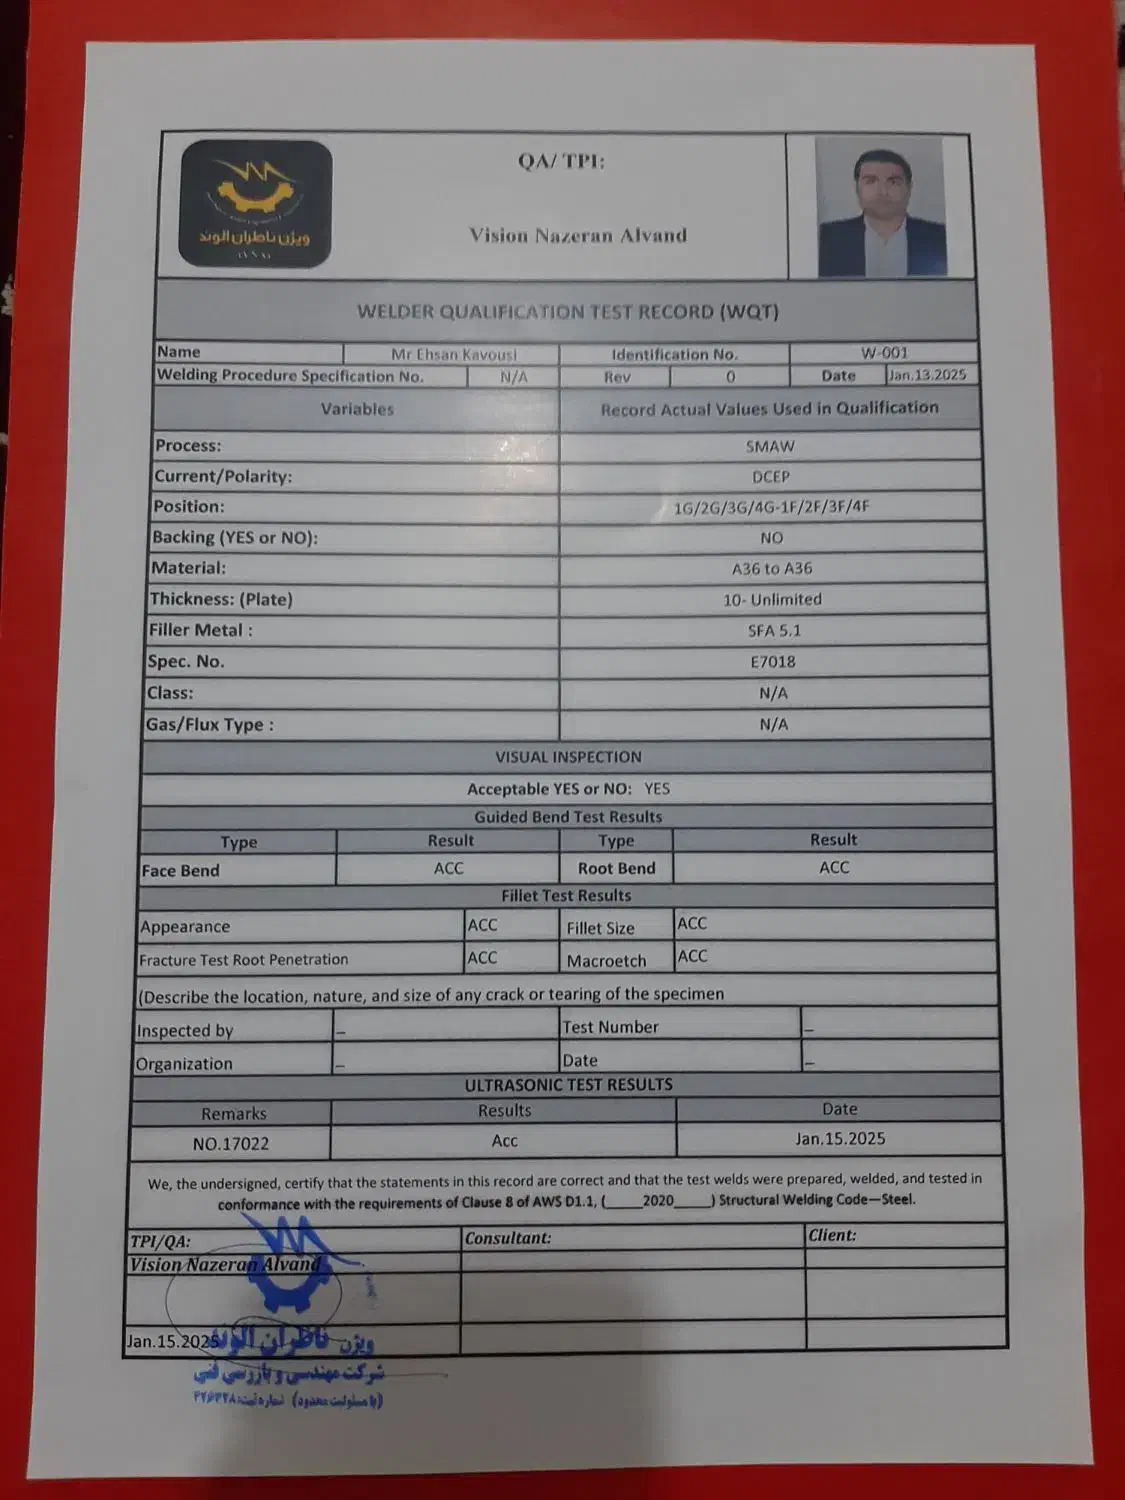 QA/ TPI:
Vision Nazeran Alvand
ویژن ناظران الوند
WELDER QUALIFICATION TEST RECORD (WQT)
Name Mr Ehsan Kavousi Identification No. W-001
Welding Procedure Specification No. N/A Rev 0 Date Jan.13.2025
Variables Record Actual Values Used in Qualification
Process: SMAW
Current/Polarity: DCEP
Position: 1G/2G/3G/4G-1F/2F/3F/4F
Backing (YES or NO): NO
Material: A36 to A36
Thickness: (Plate) 10- Unlimited
Filler Metal : SFA 5.1
Spec. No. E7018
Class: N/A
Gas/Flux Type : N/A
VISUAL INSPECTION
Acceptable YES or NO: YES
Guided Bend Test Results
Type Result Type Result
Face Bend ACC Root Bend ACC
Fillet Test Results
Appearance ACC Fillet Size ACC
Fracture Test Root Penetration ACC Macroetch ACC
(Describe the location, nature, and size of any crack or tearing of the specimen
Inspected by _ Test Number _
Organization _ Date _
ULTRASONIC TEST RESULTS
Remarks Results Date
NO.17022 Acc Jan.15.2025
We, the undersigned, certify that the statements in this record are correct and that the test welds were prepared, welded, and tested in
conformance with the requirements of Clause 8 of AWS D1.1, (_____2020_____) Structural Welding Code—Steel.
TPI/QA: Consultant: Client:
Vision Nazeran Alvand
Jan.15.2025
ویژن ناظران الوند
شرکت مهندسی و بازرسی فنی
(با مسئولیت محدود) شماره ثبت: